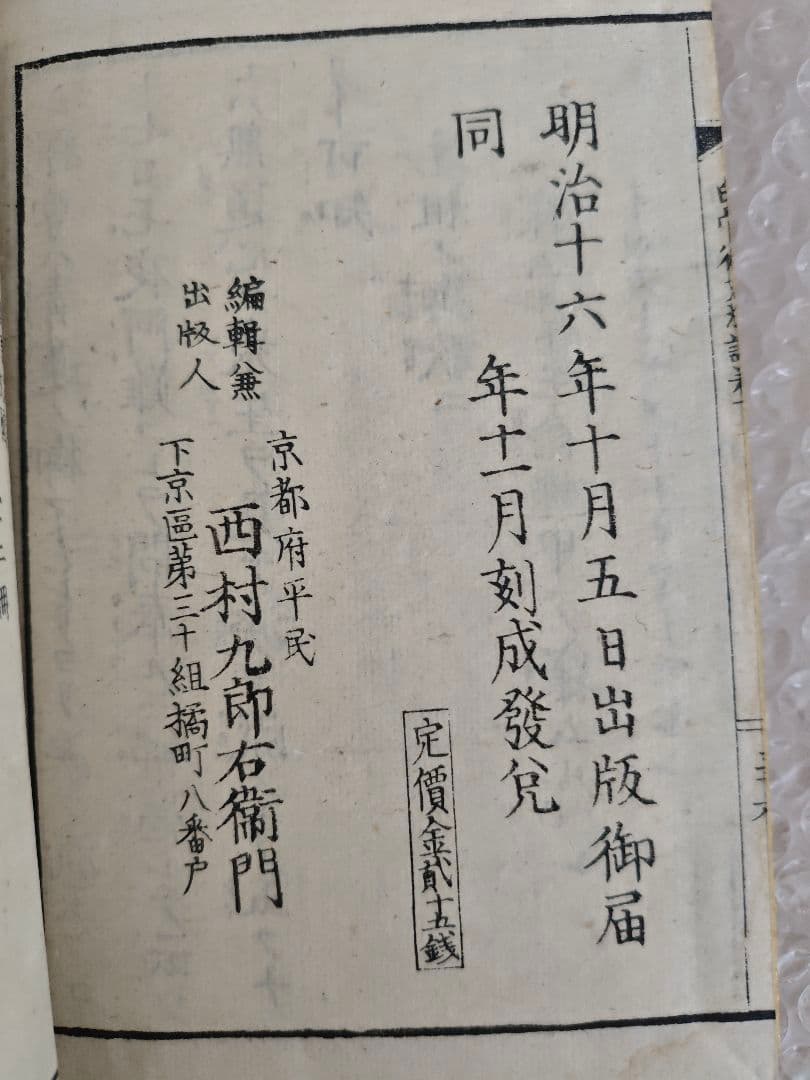 明治十六年十月五日出版御届
同 年十一月刻成發兌
定價金貳十五錢
編輯兼
出版人
京都府平民
西村九郎右衞門
下京區第三十組橘町八番戸